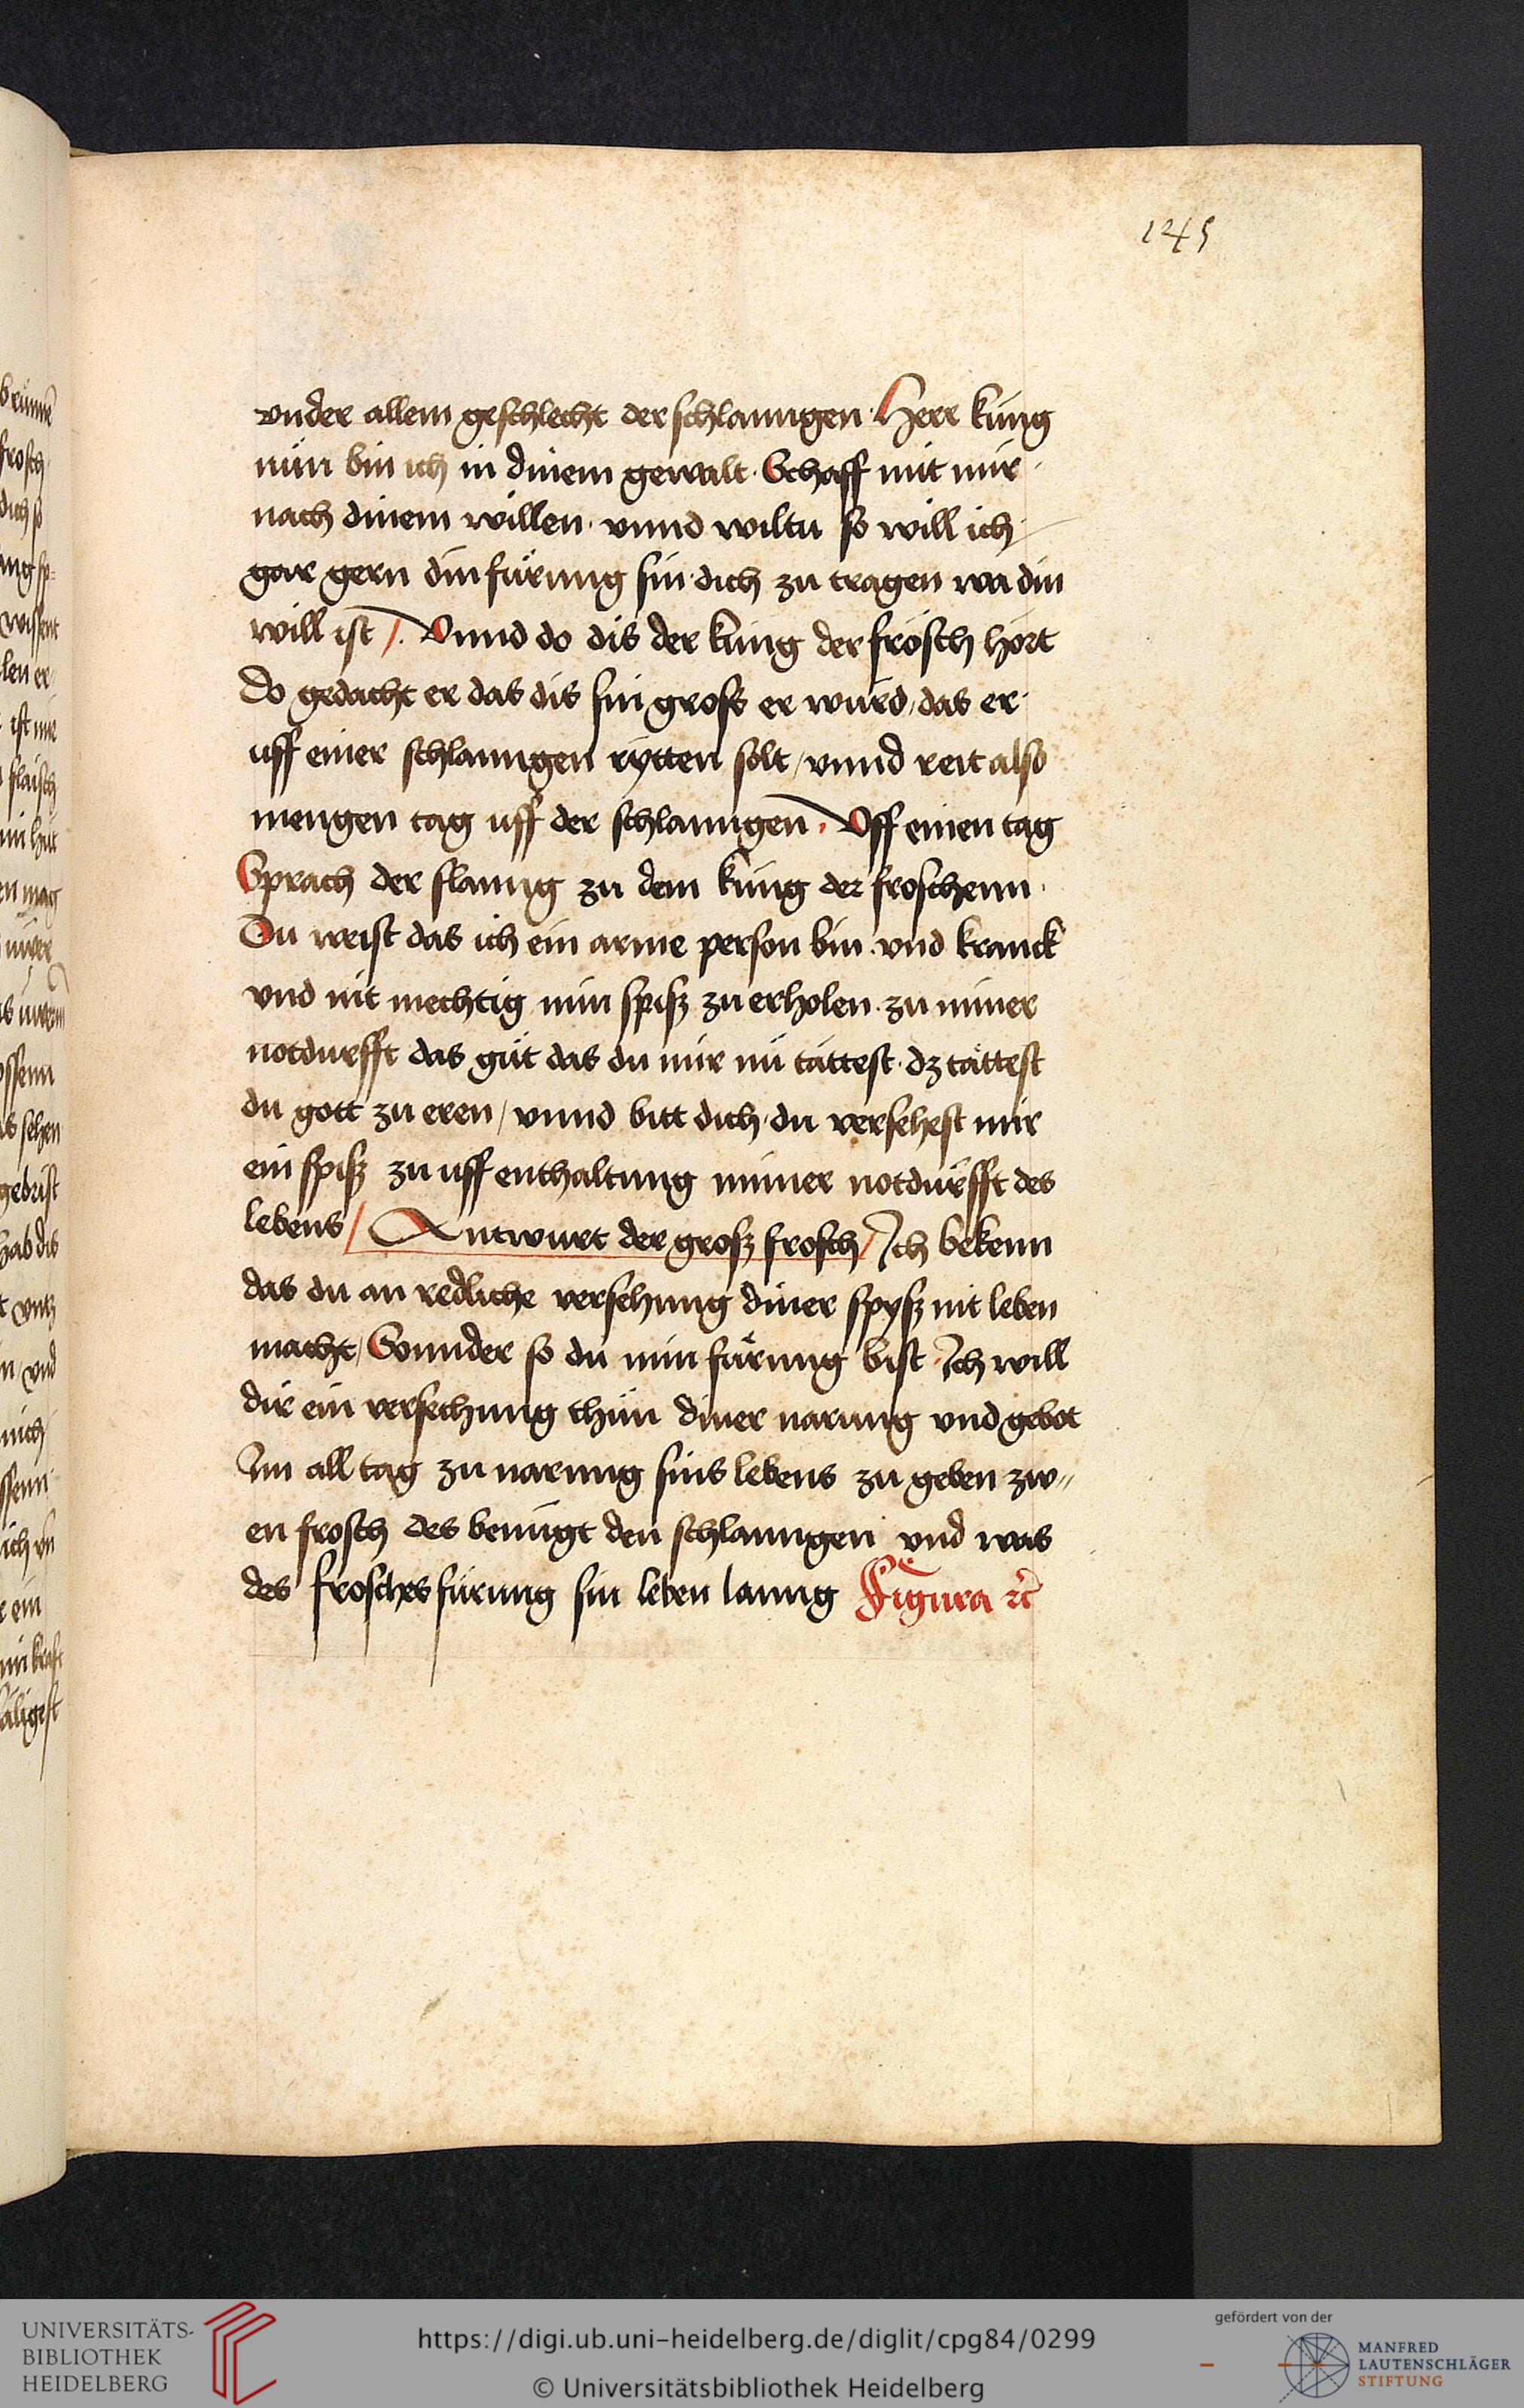 145
vnder allem geschlecht der schlanngen · Herr kúng
nün bin ich in dinem gewalt · Schaff mit mir ·
nach dinem willen · vnnd wiltu so will ich ·
gar gern din fürung sin · dich zu tragen wa din
will ist /. Vnnd do dis der kúng der frösch hört
do gedacht er das dis sin gross er würd / das er ·
uff einer schlanngen rytten solt / vnnd reit also
mengen tag uff der schlanngen · Vff einen tag
Sprach der slanng zu dem kúng der froschenn ·
Du weist das ich ein arme person bin · vnd kranck
vnd nit mechtig min spisz zu erholen · zu miner
notdurfft das güt das du mir nü tättest · dz tättest
du gott zu eren / vnnd bitt dich · du versehest mir
ein spisz zu uff enthaltung miner notdürfft des
lebens / Antwurt der grosz frosch / Ich bekenn
das du an redliche versehung diner spysz nit leben
macht / Sonnder so du min fürung bist · Ich will
dir ein versechung thün diner narung vnd gebot
Im all tag zu narung sins lebens zu geben zw„
en frosch des benúgt den schlanngen · vnd was
des frosches fürung sin leben lanng Figura ꝛc
brünne
frosch
dich so
ung sp-
wissent
len er
ist mir
flaisch
min hüt
en mag
sehen
gebrist
hab dis
vntz
vnd
mich
ich vn
ein
min kraft
UNIVERSITÄTS-
BIBLIOTHEK
HEIDELBERG
https://digi.ub.uni-heidelberg.de/diglit/cpg84/0299
© Universitätsbibliothek Heidelberg
gefördert von der
MANFRED
LAUTENSCHLÄGER
STIFTUNG